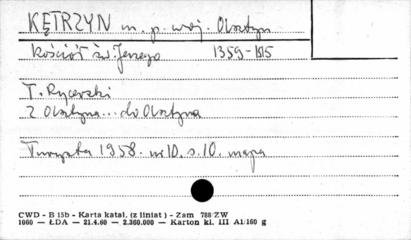 KĘTRZYN m. p. woj. Olsztyn
Kościół św. Jerzego 1359-1515
T. Rycerski
Z Olsztyna... do Olsztyna
Turysta 1958. nr 10. s. 10. mapa
CWD - B 15b - Karta katal. (z liniat) - Zam 788 ZW
1060 — ŁDA — 21.4.60 — 2.360.000 — Karton kl. III A1/160 g